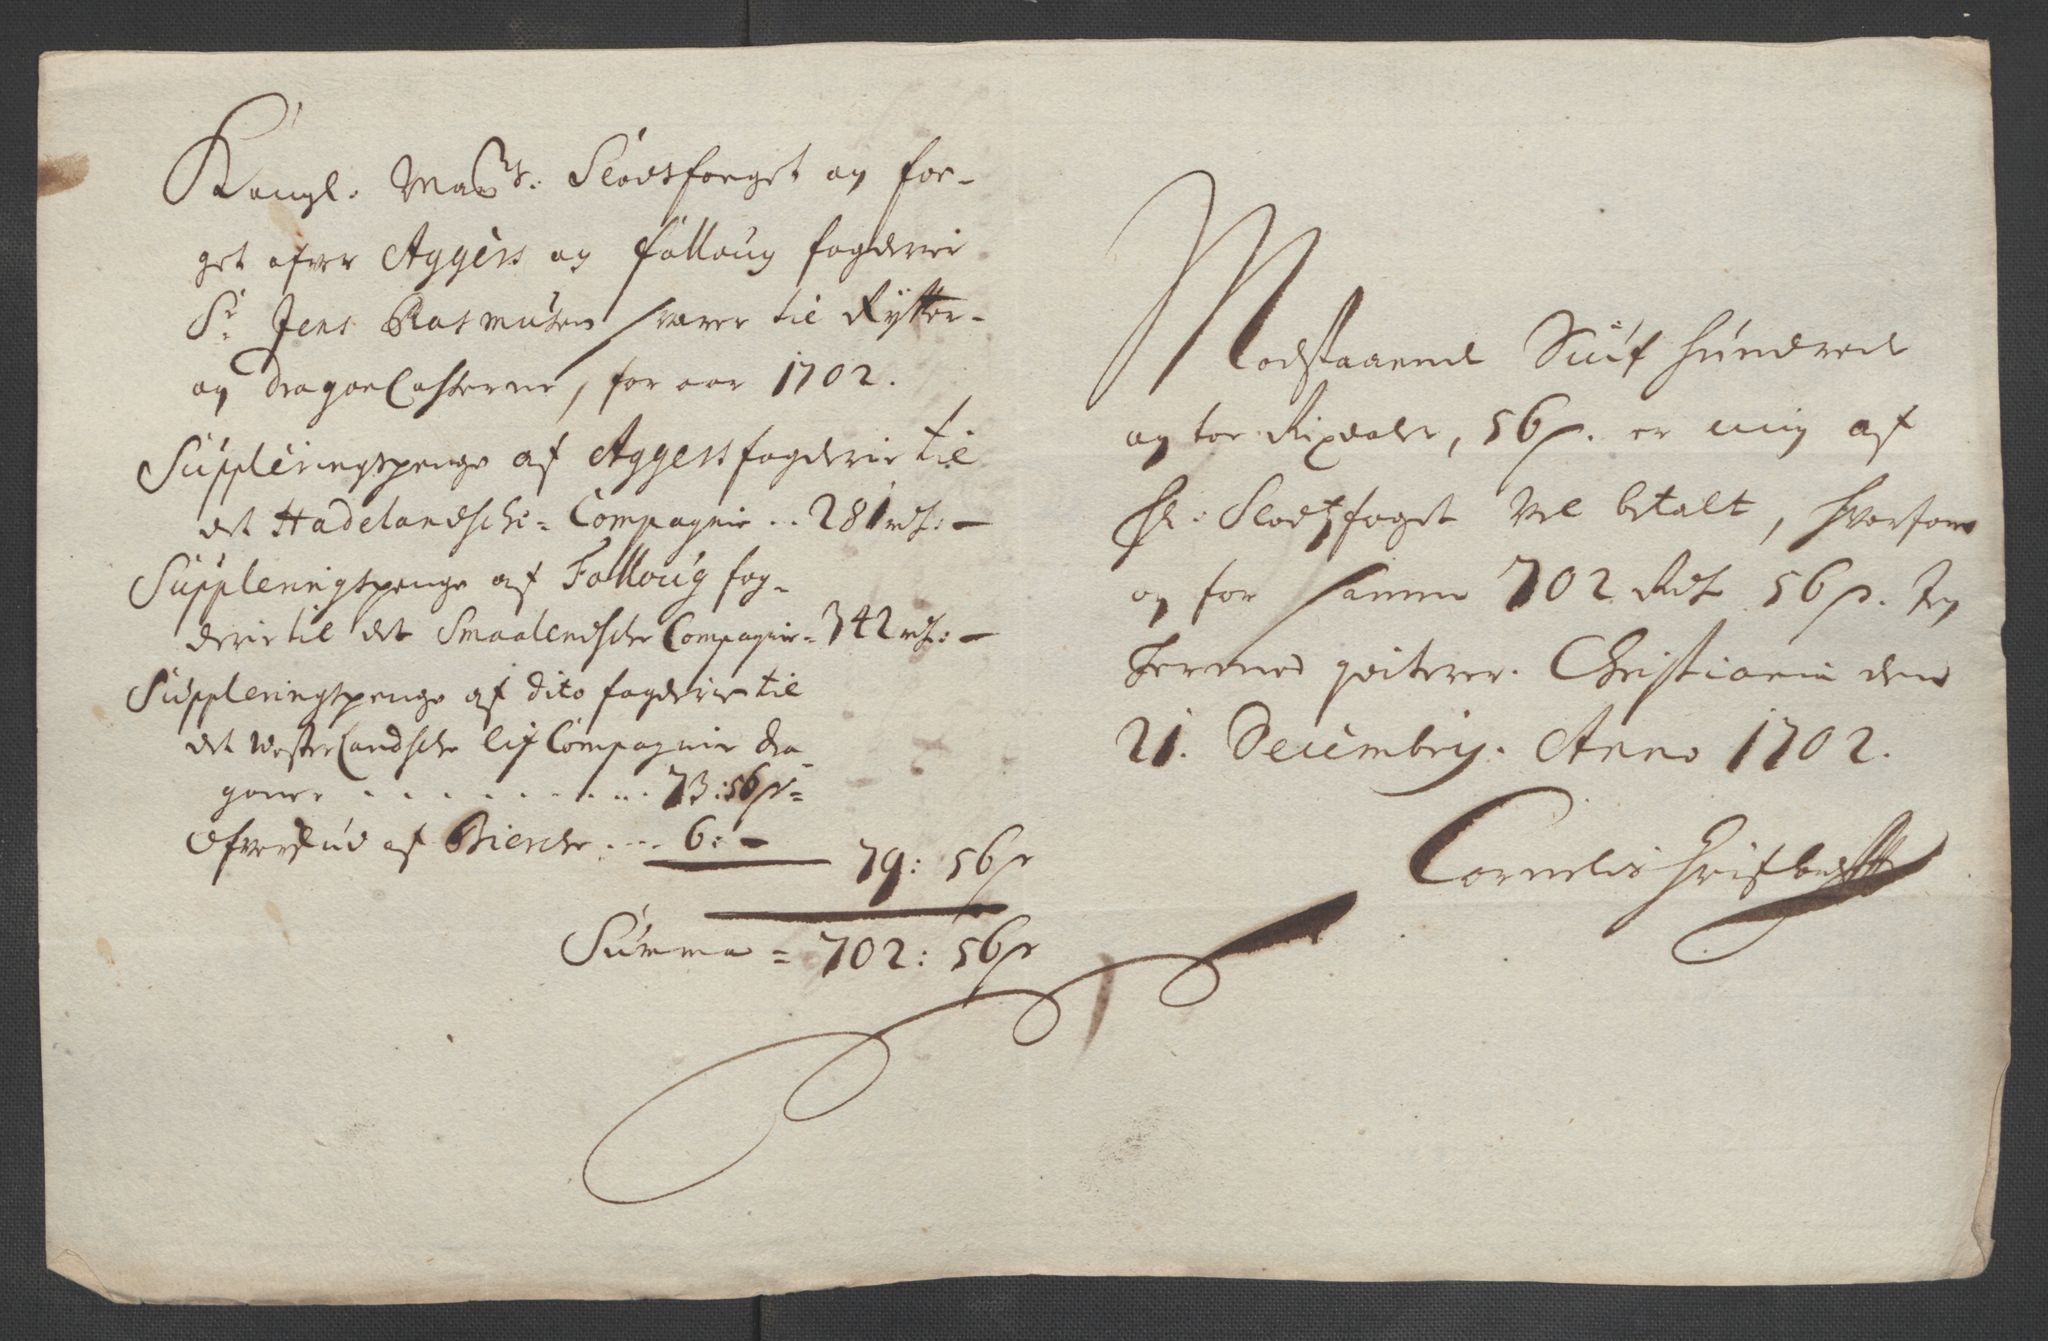 Kongl. Mayts. Slodtsfoeget og foe-
get ofver Aggers og Folloug fogderie
Sr. Jens Rasmusen svarer til Rytter-
og dragon Casserne, for aar 1702.
Suppleringspenge af Aggers fogderie til
det Hadelandsche Compagnie .. 281 rdr: —
Suppleringspenge af Folloug fog-
derie til det Smaalendsche Compagnie = 342 rdr: —
Suppleringspenge af dito fogderie til
det Westerlandsche lif Compagnie dra-
goner . . . . . . . . . . 73: 56 s =
Ofverskud af .... 6: —
79: 56 s
Summa = 702: 56 s
Modstaaende Siuf hundrede
og toe Rixdaler, 56 s. er mig af
Hr. Slodtzfoget vel betalt, hvorfore
og for samme 702 Rdr 56 s. Jeg
hermed qviterer. Christiania den
21. Decembris. Anno 1702.
Cornelis